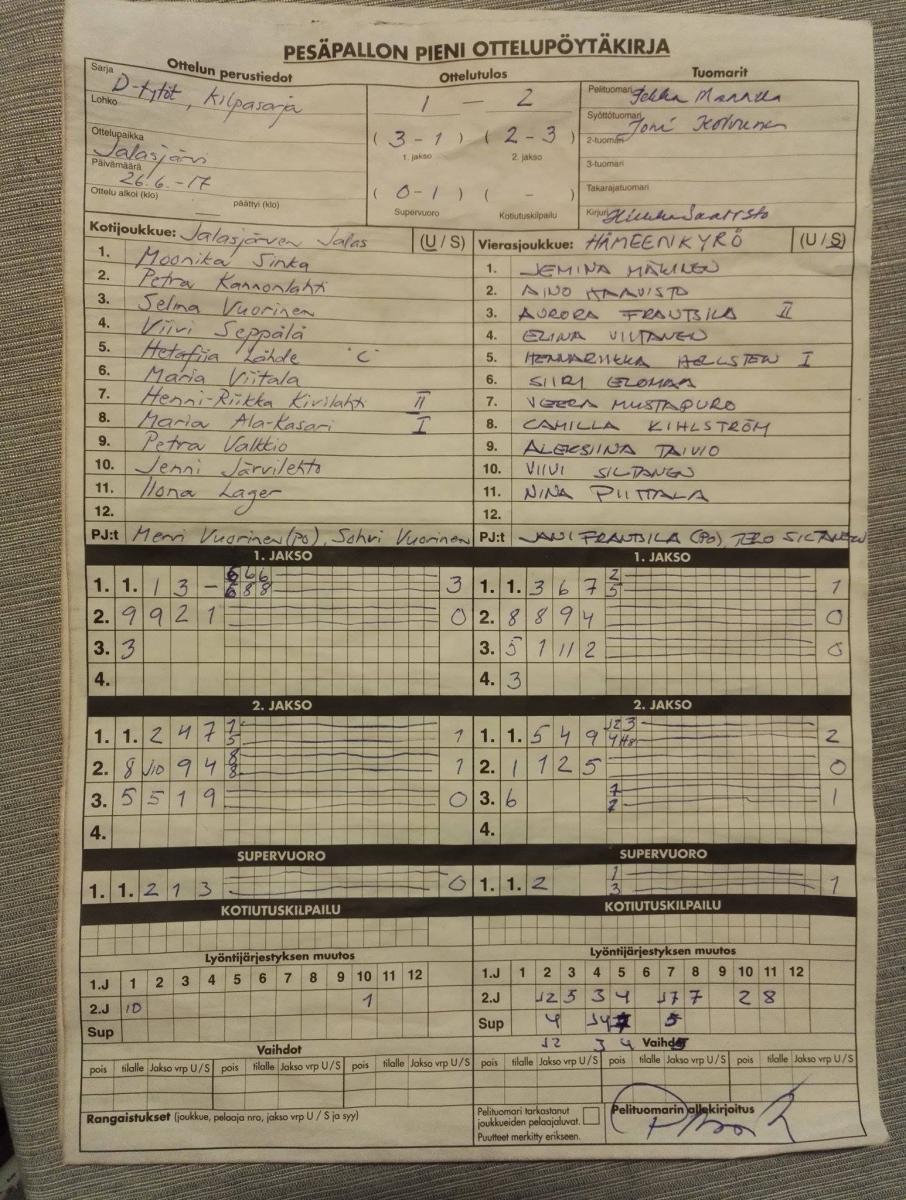 PESÄPALLON PIENI OTTELUPÖYTÄKIRJA
Ottelun perustiedot
Sarja
D-tytöt, Kilpasarja
Lohko
Ottelupaikka
Jalasjärvi
Päivämäärä
26.6.-17
Ottelu alkoi (klo) päättyi (klo)
Ottelutulos
1 — 2
(3 - 1) (2 - 3)
1. jakso 2. jakso
(0 - 1) ( - )
Supervuoro Kotiutuskilpailu
Tuomarit
Pelituomari
Syöttötuomari
Joni
2-tuomari
3-tuomari
Takarajatuomari
Kirjuri
Kotijoukkue: Jalasjärven Jalas (U / S)
1. Moonika Sinka
2. Petra Kannonlahti
3. Selma Vuorinen
4. Viivi Seppälä
5. Lähde "C"
6. Maria Viitala
7. Henni-Riikka Kivilahti II
8. Maria Ala-Kasari I
9. Petra Valkkio
10. Jenni Järvilehto
11. Ilona Lager
12.
PJ:t Mervi Vuorinen (PO), Sohvi Vuorinen
Vierasjoukkue: HÄMEENKYRÖ (U / S)
1. JEMINA MÄKINEN
2. AINO HAAVISTO
3. AURORA FRANTSILA II
4. ELINA VIITANEN
5. HENNARIIKKA HELLSTEN I
6. SIIRI ELOMAA
7. VEERA MUSTAPURO
8. CAMILLA KIHLSTRÖM
9. ALEKSIINA TAIVIO
10. VIIVI SILTANEN
11. NINA PIITTALA
12.
PJ:t JANI FRANTSILA (PO), TERO SILTANEN
1. JAKSO
1. 1. 1 3 - 6 6 6 3
6 8 8
2. 9 9 2 1 0
3. 3
4.
1. JAKSO
1. 1. 3 6 7 2 1
5
2. 8 8 9 4 0
3. 5 1 11 2 0
4. 3
2. JAKSO
1. 1. 2 4 7 1 1
5
2. 8 J10 9 4 8 1
8
3. 5 5 1 9 0
4.
2. JAKSO
1. 1. 5 4 9 J2 3 2
2. 1 1 2 5 0
3. 6 7 1
7
4.
SUPERVUORO
1. 1. 2 1 3 0
SUPERVUORO
1. 1. 2 1 1
3
KOTIUTUSKILPAILU
KOTIUTUSKILPAILU
Lyöntijärjestyksen muutos
1.J 1 2 3 4 5 6 7 8 9 10 11 12
2.J 10 1
Sup
Lyöntijärjestyksen muutos
1.J 1 2 3 4 5 6 7 8 9 10 11 12
2.J J2 5 3 4 J7 7 2 8
Sup 4 J4 5
J2 3 4
Vaihdot
pois tilalle Jakso vrp U / S pois tilalle Jakso vrp U / S pois tilalle Jakso vrp U / S
Vaihdot
pois tilalle Jakso vrp U / S pois tilalle Jakso vrp U / S pois tilalle Jakso vrp U / S
Rangaistukset (joukkue, pelaaja nro, jakso vrp U / S ja syy)
Pelituomari tarkastanut
joukkueiden pelaajaluvat.
Puutteet merkitty erikseen.
Pelituomarin allekirjoitus